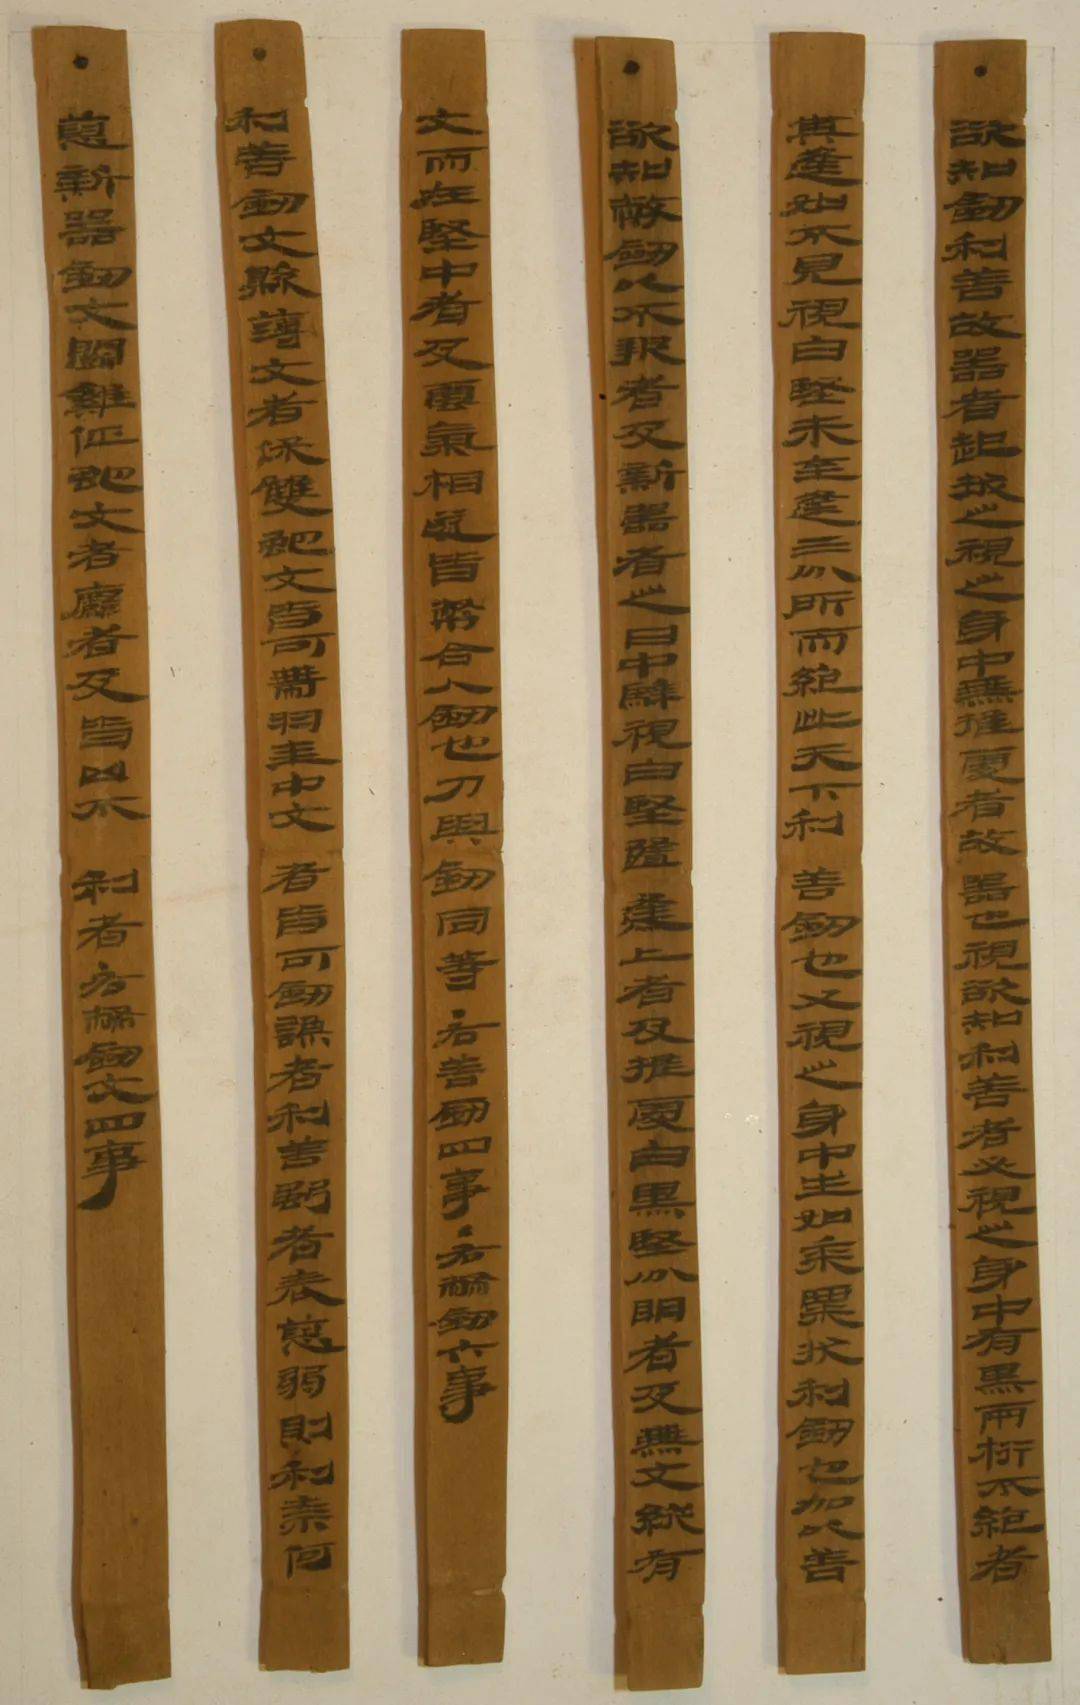 欲知劍利善故器者起拔之視之身中無推處者故器也視欲知利善者必視之身中有黑兩桁不絕者
其逢如不見視白堅未至逢三分所而絕此天下利善劍也又視之身中生如黍粟狀利劍也加以善
欲知幣劍以不報者及新器者之日中騂視白堅隨逢上者及推處白黑堅分明者及無文縱有
文而在堅中者及雲氣相遂皆幣合人劍也刀與劍同等·右善劍四事·右幣劍六事
利善劍文縣薄文者保雙蛇文皆可帶羽圭中文者皆可劍謙者利善強者表恿弱則利奈何
恿新器劍文鬭雞佂蛇文者麤者及皆凶不利者·右幣劍文四事